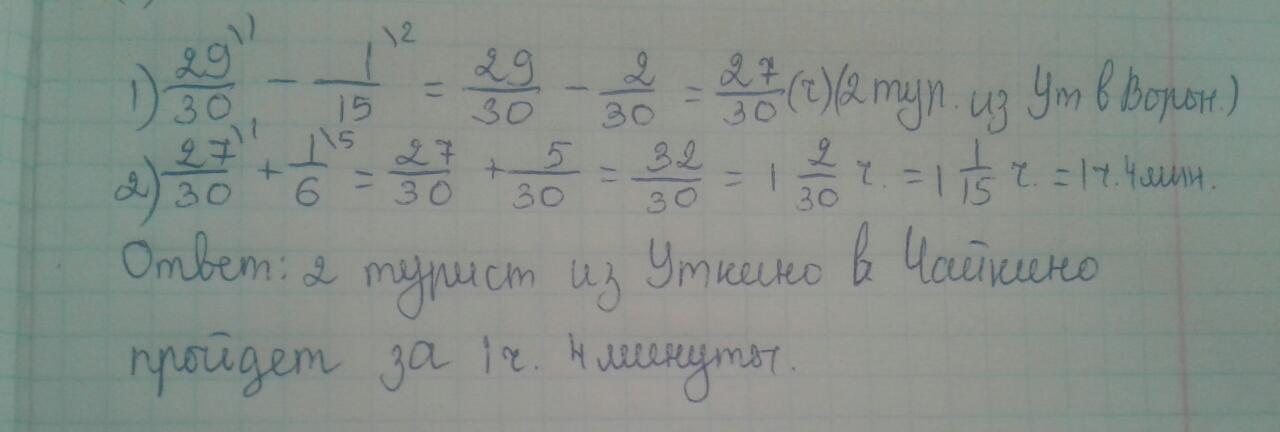 1) 29\1/30 - 1\2/15 = 29/30 - 2/30 = 27/30 (ч) (2 тур. из Ут в Ворон.)
2) 27\1/30 + 1\5/6 = 27/30 + 5/30 = 32/30 = 1 2/30 ч. = 1 1/15 ч. = 1 ч. 4 мин.
Ответ: 2 турист из Уткино в Чайкино
пройдет за 1 ч. 4 минуты.